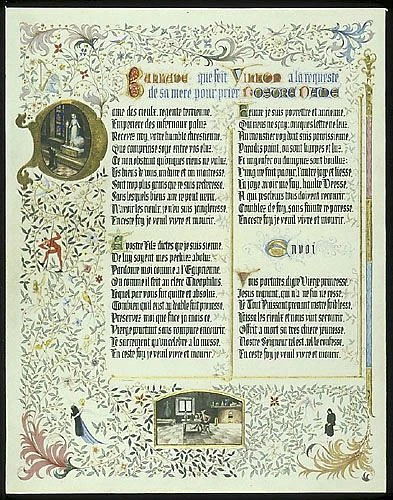 Ballade que feit Villon a la requeste
de sa mere pour prier Nostre Dame
Dame des cieulx, regente terrienne,
Emperiere des infernaux paluz,
Recevez moy, votre humble chrestienne,
Que comprinse soye entre vos esleuz,
Ce non obstant qu'oncques riens ne valuz.
Les biens de vous, ma dame et ma maistresse,
Sont trop plus grans que ne suis pecheresse,
Sans lesquels biens ame ne peut merir
N'avoir les cieulx, je n'en suis jangleresse.
En ceste foy je veuil vivre et mourir.
A vostre Filz dictes que je suis sienne.
De luy soyent mes pechiez aboluz.
Pardonne moy comme a l'Egipcienne,
Ou comme il feit au clerc Theophilus,
Lequel par vous fut quitte et absoluz,
Combien qu'il eust au deable fait promesse.
Preservez moy que face ja mais ce,
Vierge portant sans rompure encourir
Le sacrement qu'on celebre a la messe.
En ceste foy je veuil vivre et mourir.
Femme je suis povrette et ancienne,
Qui riens ne sçay; oncques lettre ne leuz.
Au moustier voy dont suis paroissienne
Paradis paint, ou sont harpes et luz,
Et ung enfer ou dampnez sont boulluz:
L'ung me fait paour, l'autre joye et liesse.
La joye avoir me fay, haulte Deesse,
A qui pecheurs tous doivent recourir,
Comblez de foy, sans fainte ne paresse.
En ceste foy je veuil vivre et mourir.
Envoi
Vous portastes digne Vierge princesse,
Jesus regnant, qui n'a ne fin ne cesse.
Le Tout Puissant prenant nostre foiblesse,
Laissa les cieulx et nous vint secourir,
Offrit a mort sa tres chiere jeunesse.
Nostre Seigneur tel est, tel le confesse,
En ceste foy je veuil vivre et mourir.